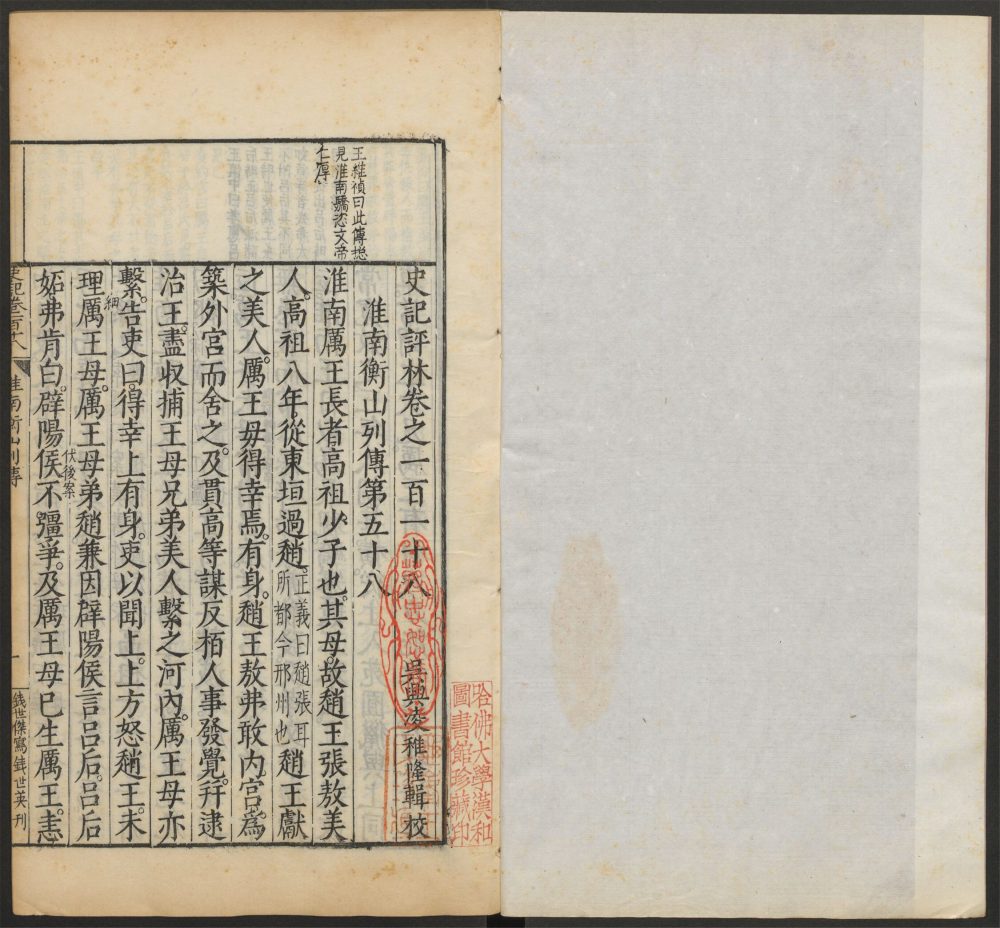 史記評林卷之一百一十八
吳興凌稚隆輯校
淮南衡山列傳第五十八
王維禎曰此傳摠
見淮南驕恣文帝
仁厚
淮南厲王長者高祖少子也其母故趙王張敖美
人高祖八年從東垣過趙正義曰趙張耳所都今邢州也趙王獻
之美人厲王母得幸焉有身趙王敖弗敢內宮爲
築外宮而舍之及貫高等謀反栢人事發覺幷逮
治王盡收捕王母兄弟美人繫之河內厲王母亦
繫告吏曰得幸上有身吏以聞上上方怒趙王未
理厲王母厲王母弟趙兼因辟陽侯言呂后呂后
細
妬弗肯白辟陽侯不彊爭及厲王母已生厲王恚
伏後案
史記卷百十八
淮南衡山列傳
一
錢世傑寫錢世英刊
哈佛大學漢和
圖書館珍藏印